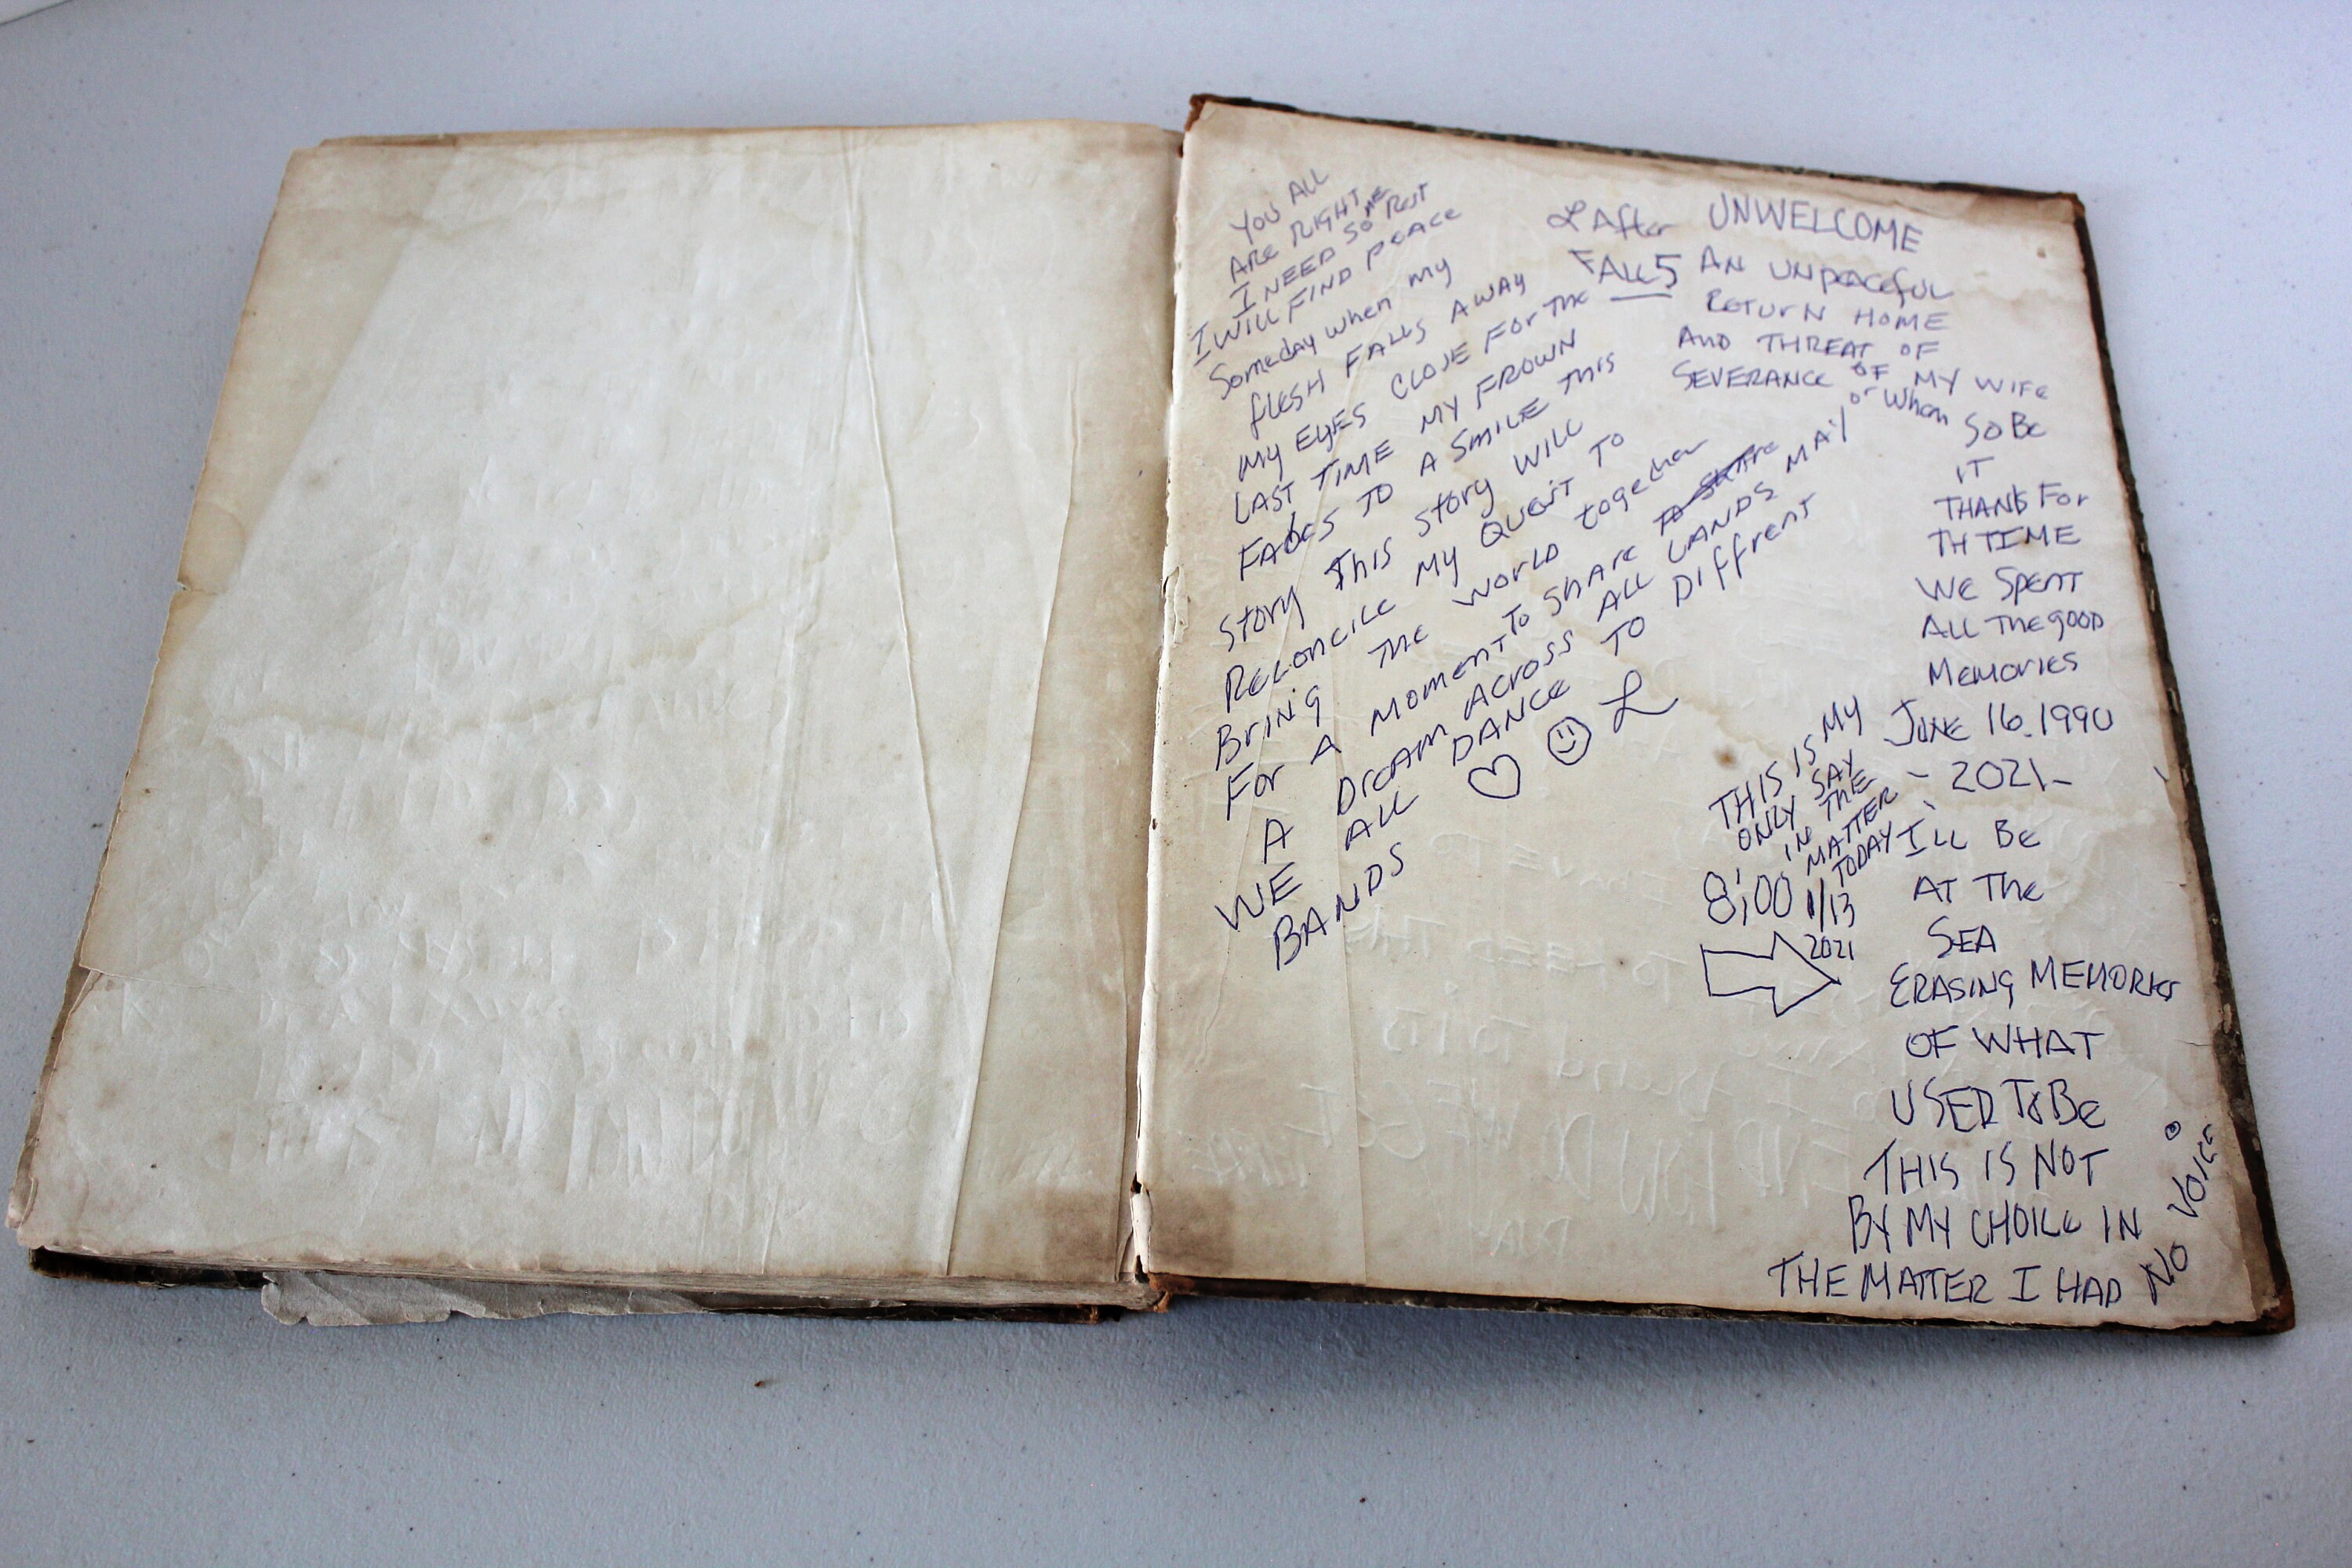 YOU ALL
ARE RIGHT
I NEED SOME REST
I WILL FIND PEACE
Someday when my
flesh FALLS AWAY
MY EYES CLOSE FOR THE
LAST TIME MY FROWN
FADES TO A SMILE THIS
Story This story WILL
RECONCILE MY QUEST TO
Bring The WORLD together
For A MOMENT To SHARE
A Dream Across ALL LANDS MAY
WE ALL DANCE TO Diffrent
BANDS
L After
FALLS
UNWELCOME
AN UNpeaceful
RETURN HOME
AND THREAT OF
SEVERANCE OF MY WIFE
or When
SO BE
IT
THANKS For
TH TIME
WE SPENT
ALL THE gOOD
Memories
JUNE 16.1990
- 2021 -
ILL BE
AT THE
SEA
ERASING MEMORIES
OF WHAT
USED TO BE
THIS IS NOT
BY MY CHOICE IN
THE MATTER I HAD
NO VOICE
THIS IS MY
ONLY SAY
IN THE
MATTER
TODAY
8:00 1/13
2021